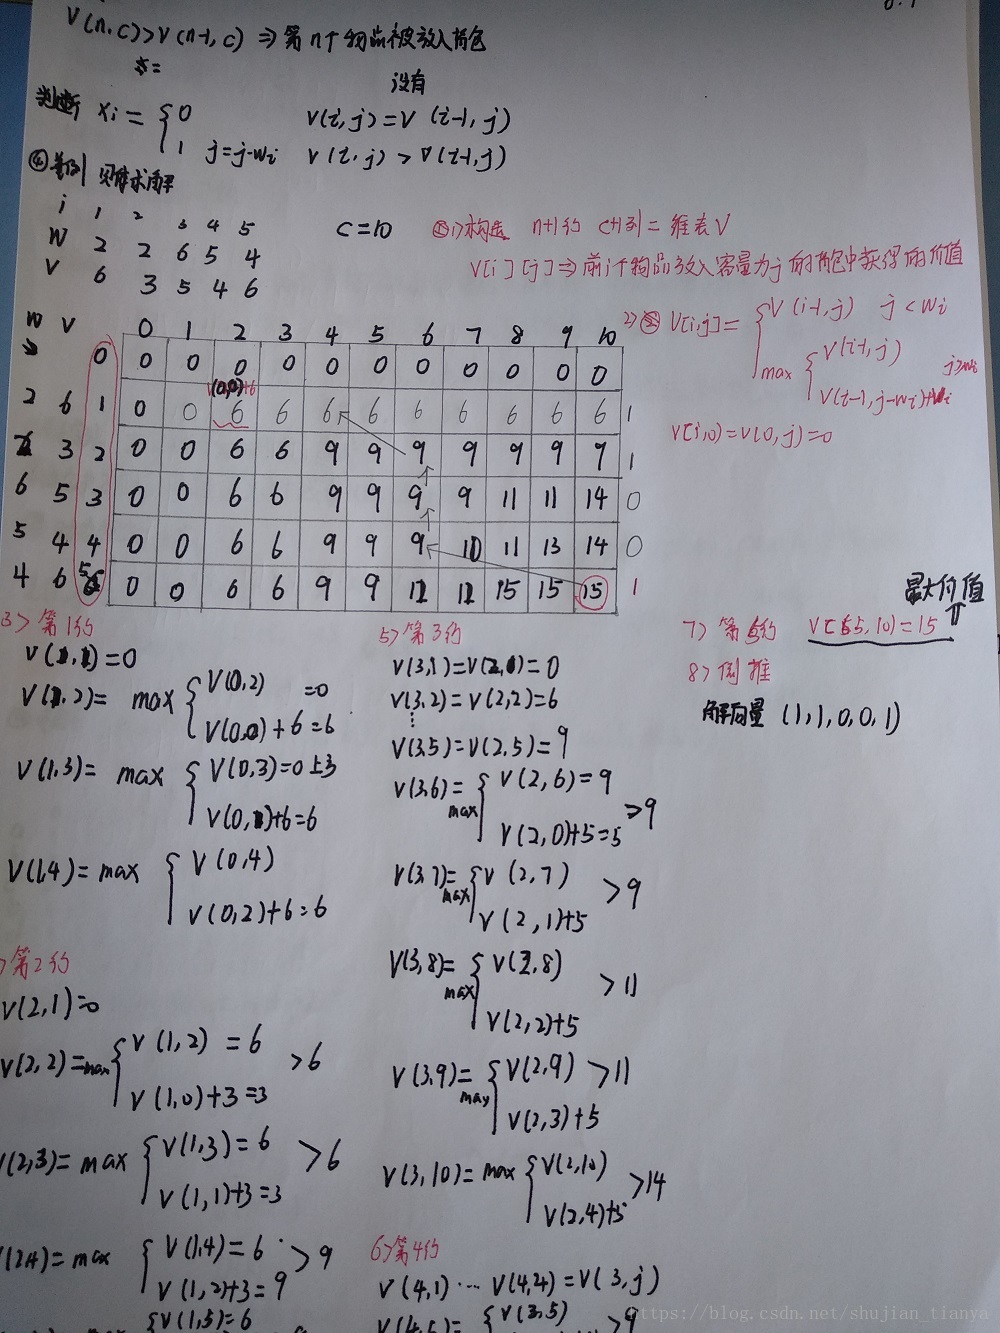 V(n,c)>V(n-1,c) ⇒ 第n个物品被放入背包
没有
判断 xi = { 0 V(i,j)=V(i-1,j)
1 j=j-wi V(i,j)>V(i-1,j)
④
i 1 2 3 4 5
W 2 2 6 5 4 C=10
V 6 3 5 4 6
1)构造 n+1行 c+1列二维表V
V[i][j]⇒前i个物品放入容量为j的背包中获得的价值
2) V[i,j]= { V(i-1,j) j<wi
max { V(i-1,j)
V(i-1,j-wi)+vi j≥wi
V(i,0)=V(0,j)=0
W V 0 1 2 3 4 5 6 7 8 9 10
0 0 0 0 0 0 0 0 0 0 0 0
2 6 1 0 0 6 6 6 6 6 6 6 6 6 1
2 3 2 0 0 6 6 9 9 9 9 9 9 9 1
6 5 3 0 0 6 6 9 9 9 9 11 11 14 0
5 4 4 0 0 6 6 9 9 9 10 11 13 14 0
4 6 5 0 0 6 6 9 9 12 12 15 15 15 1
3> 第1行
V(1,1)=0
V(1,2)= max { V(0,2) =0
V(0,0)+6=6
V(1,3)= max { V(0,3)=0
V(0,1)+6=6
V(1,4)= max { V(0,4)
V(0,2)+6=6
>第2行
V(2,1)=0
V(2,2)=max { V(1,2) = 6
V(1,0)+3=3 >6
V(2,3)= max { V(1,3)=6
V(1,1)+3=3 >6
max { V(1,4)=6
V(1,2)+3=9 >9
{V(1,5)=6
5> 第3行
V(3,1)=V(2,1)=0
V(3,2)=V(2,2)=6
⋮
V(3,5)=V(2,5)=9
V(3,6)= max { V(2,6)=9
V(2,0)+5=5 >9
V(3,7)= max { V(2,7)
V(2,1)+5 >9
V(3,8)= max { V(2,8)
V(2,2)+5 >11
V(3,9)= max { V(2,9)
V(2,3)+5 >11
V(3,10)= max { V(2,10)
V(2,4)+5 >14
6>第4行
V(4,1)⋯V(4,4)=V(3,j)
{V(3,5) >9
最大价值
7> 第5行 V(5,10)=15
8> 倒推
解向量 (1,1,0,0,1)
https://blog.csdn.net/shujian_tianya